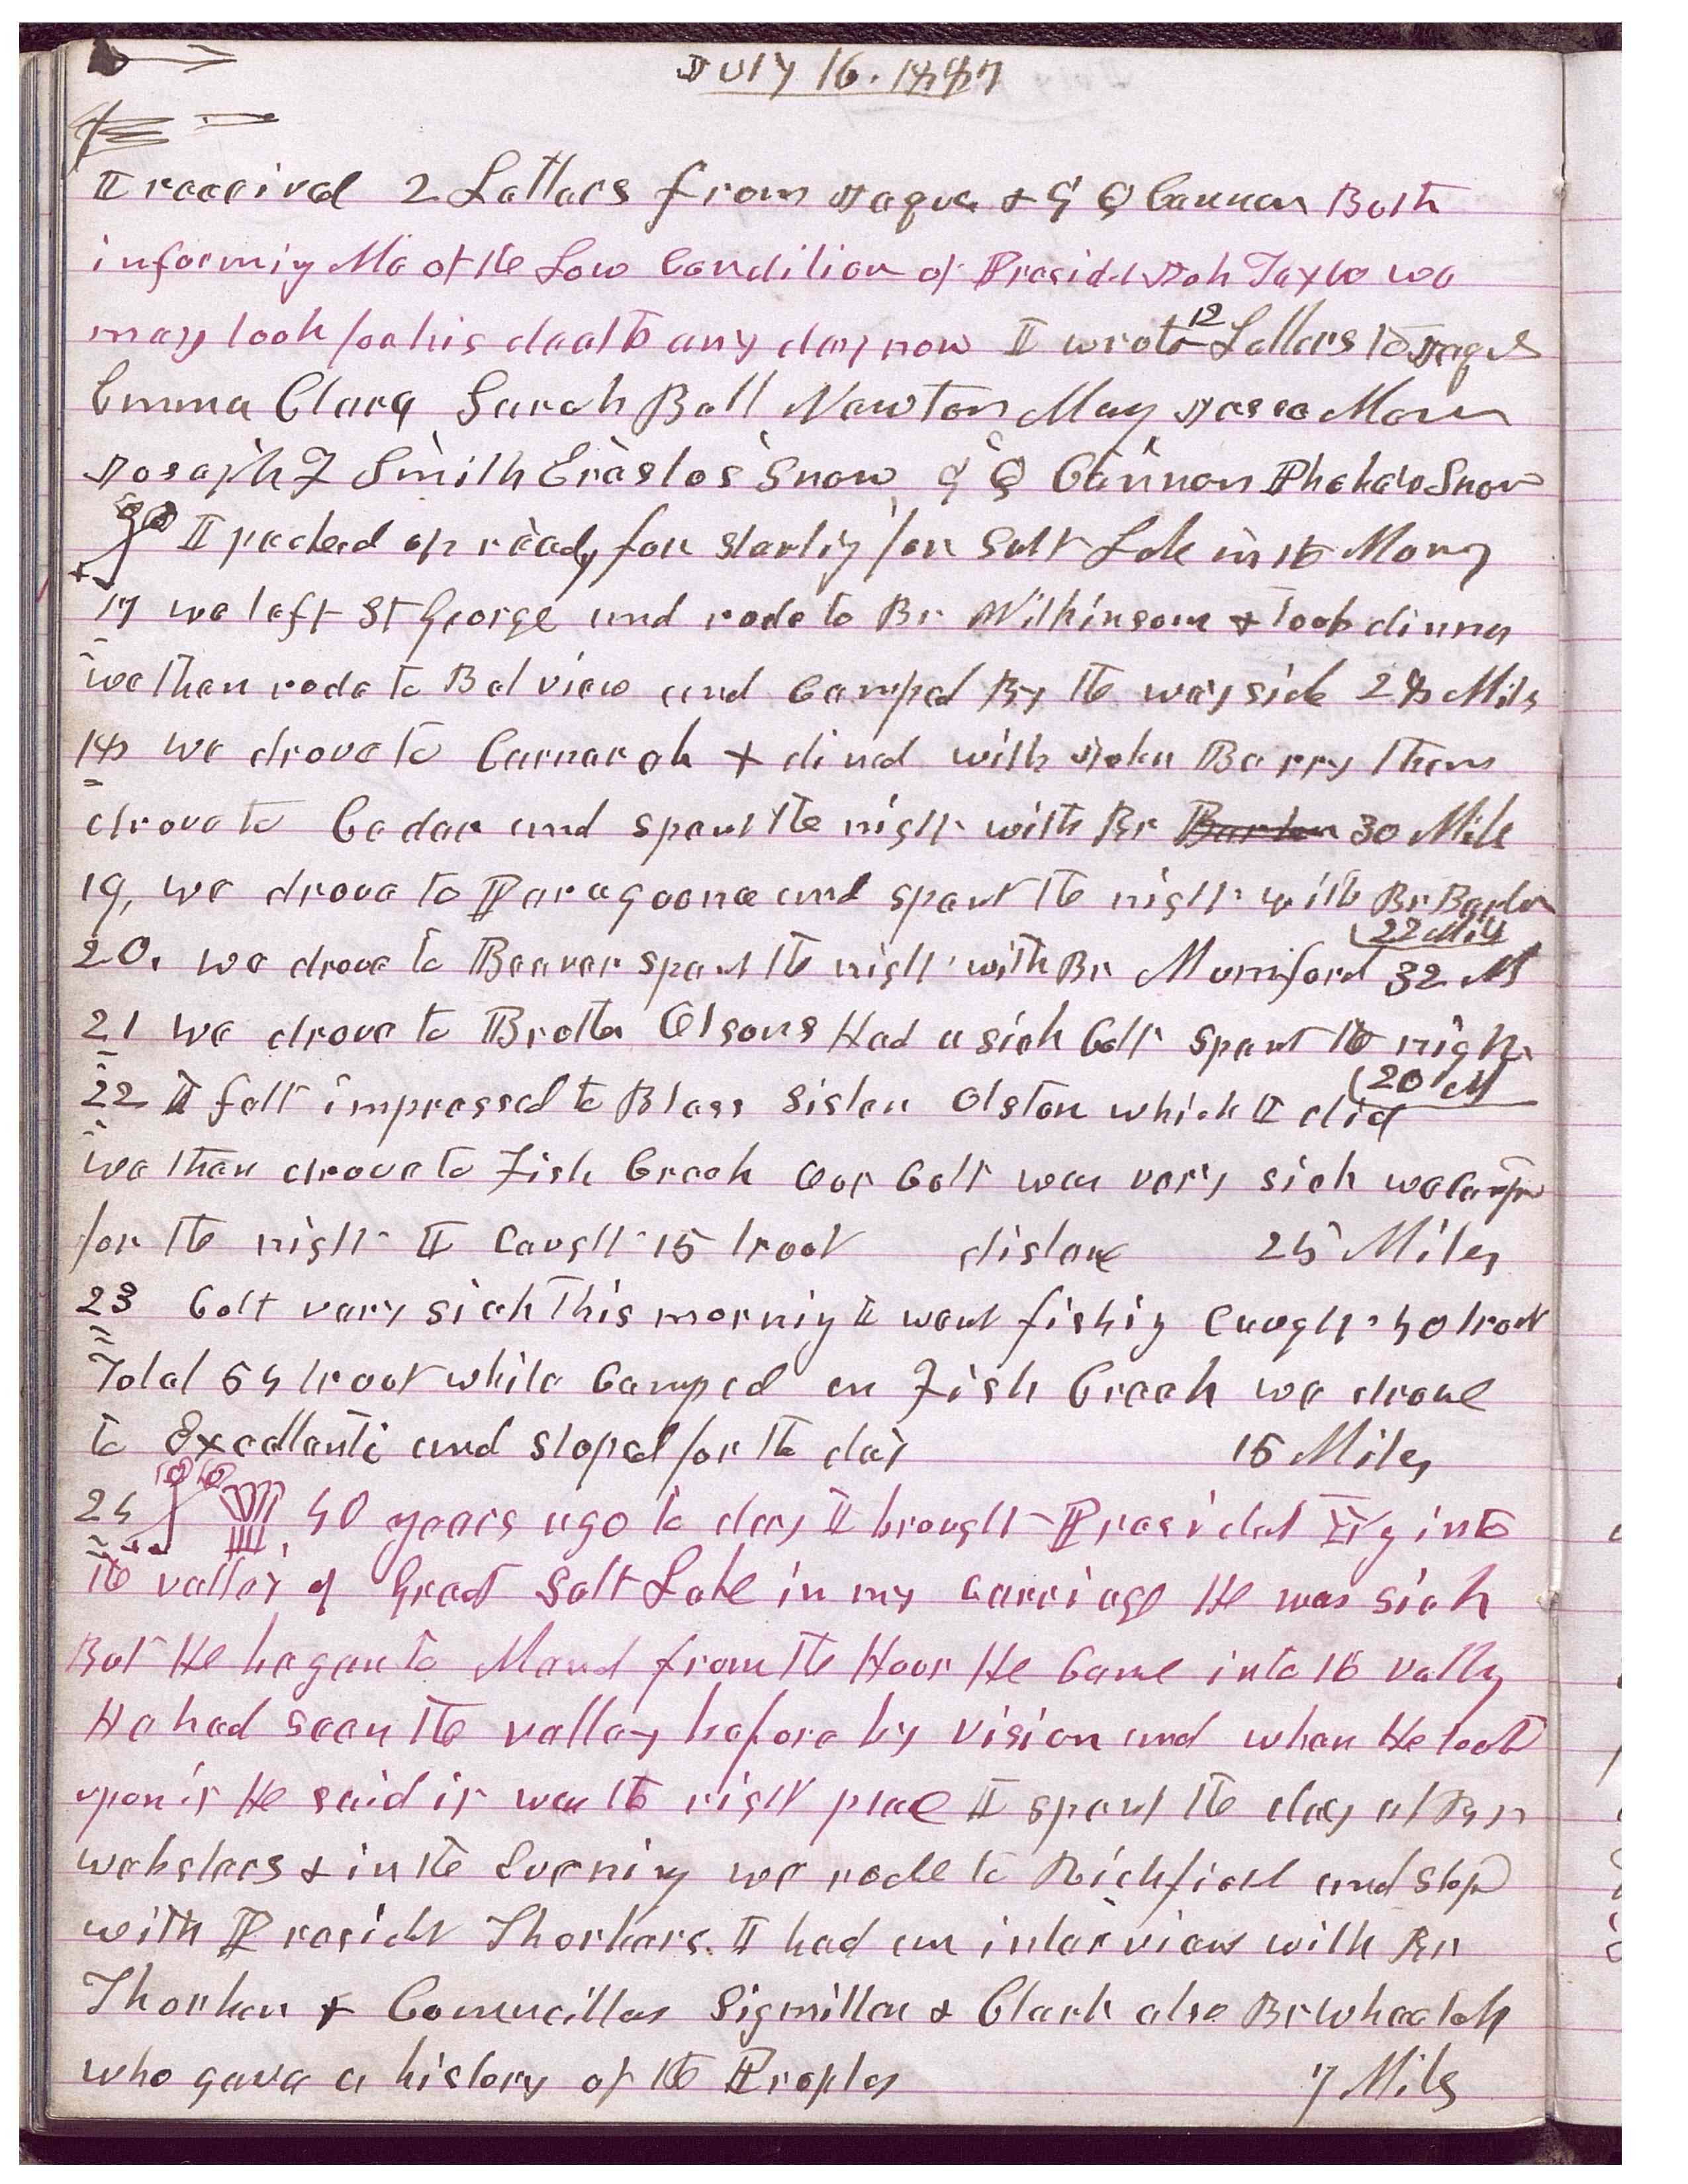 July 16. 1887
I received 2 Letters from Jaques & G Q Cannon Both
informing Me of the Low Condition of Presidet Joh Taylor we
may look for his death any day now I wrote 12 Letters to Jaques
Emma Clara Sarah Bell Newton May Jesse Moses
Joseph F Smith Erastus Snow, G Q Cannon Phebe Snow
I packed up ready for starting for Salt Lake in the Morng
17 we left St George and rode to Br Wilkinsons & took dinner
we then rode to Belview and Camped By the way side 28 Mils
18 we drove to Cannarah & dined with John Berry then
drove to Cedar and spent the night with Br Barton 30 Mile
19, we drove to Paragoona and spent the night with Br Barton
22 Mils
20. we drove to Beaver spent the night with Br Murriford 32 M
21 we drove to Brother Olsons Had a sick Colt spent the night
20 M
22 I felt impressed to Bless Sister Olston which I did
we then drove to Fish Creek Our Colt was very sick we camp
for the night I Caught 15 trout distance 25 Miles
23 Colt very sick this morning I went fishing Caught 40 trout
Total 54 trout while Camped on Fish Creek we drove
to and stoped for the day 15 Miles
24 40 years ago to day I brought Presidet Yg into
the valley of Great Salt Lake in my Carriage He was sick
But He began to Mend from the Hour He Came into the vally
He had seen the valley before by vision and when He look
upon it He said it was the right place I spent the day at Br
websters & in the Evening we rode to Richfield and stop
with Presidt Thorbers. I had an interview with Br
Thorber & Councillors Sigmiller & Clark also Br Wheelock
who gave a history of the Peoples 7 Mils